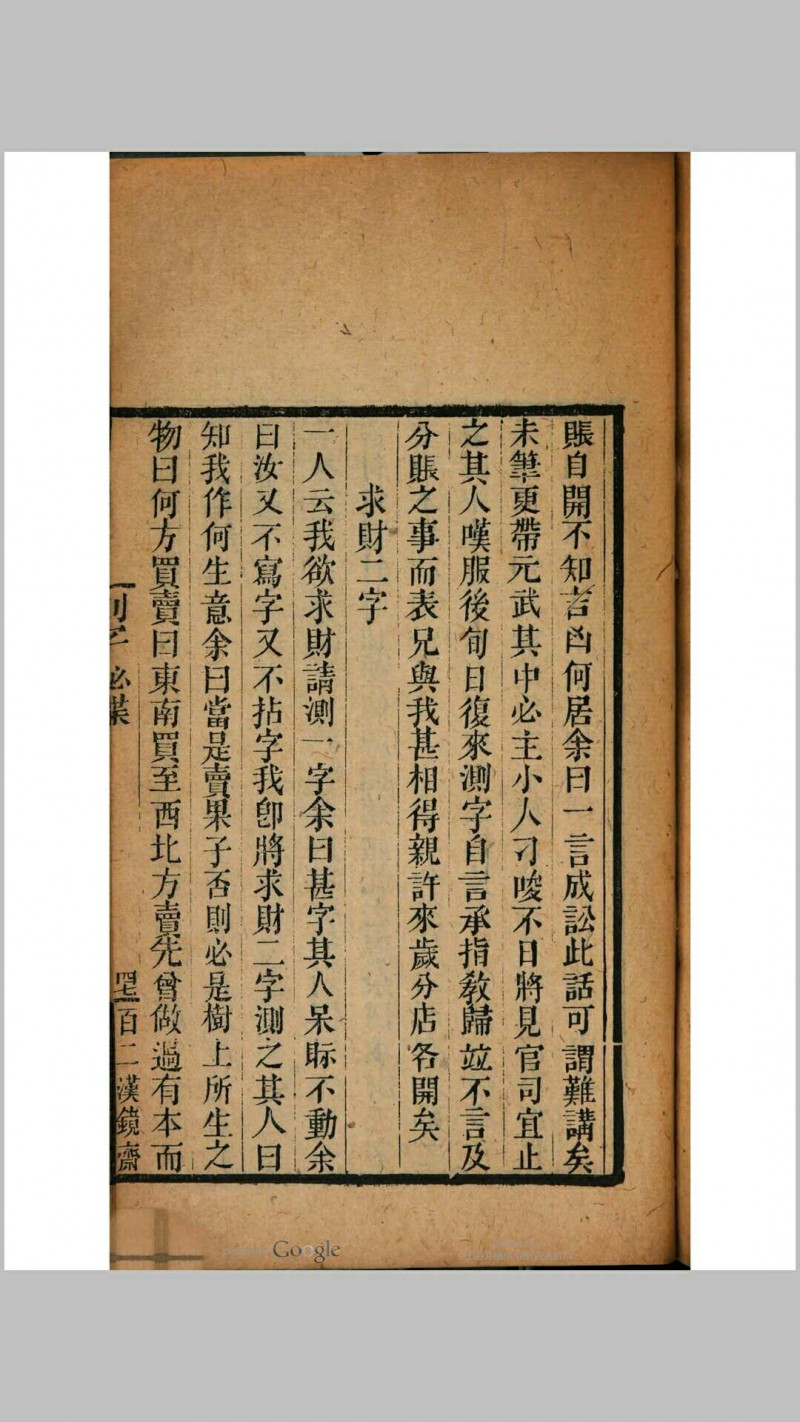 賬自開不知吉凶何居余曰一言成訟此話可謂難講矣
未筆更帶元武其中必主小人刁唆不日將見官司宜止
之其人嘆服後旬日復來測字自言承指教歸竝不言及
分賬之事而表兄與我甚相得親許來歲分店各開矣
求財二字
一人云我欲求財請測一字余曰甚字其人呆眎不動余
曰汝又不寫字又不拈字我卽將求財二字測之其人曰
知我作何生意余曰當是賣果子否則必是樹上所生之
物曰何方買賣曰東南買至西北方賣先曾做過有本而
百二漢鏡齋
Google